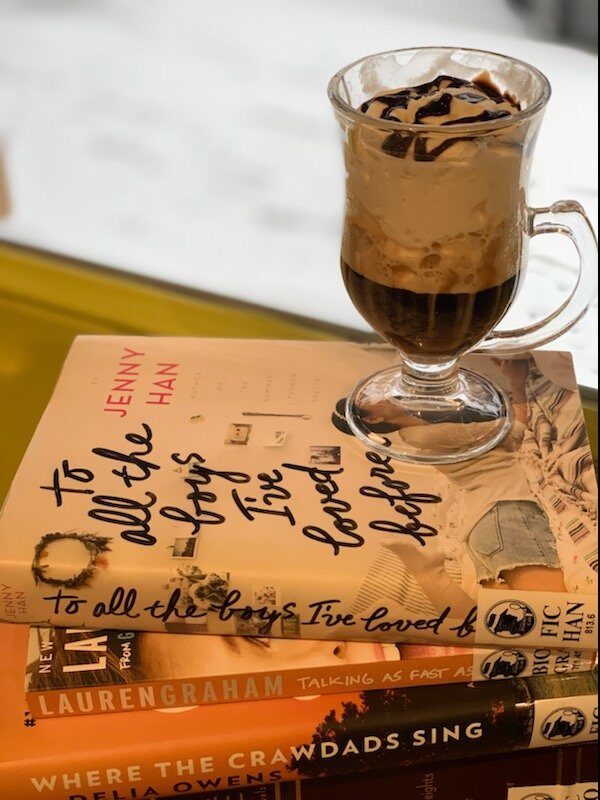 BY
JENNY
HAN
AUTHOR OF THE SUMMER I TURNED PRETTY
to
all the
boys
I've
loved
before
JENNY
HAN
to all the boys I've loved b
FIC
HAN
813.6
NEW
LAU
FROM G
LAURENGRAHAM TALKING AS FAST AS
BIO
GRAH
#1
WHERE THE CRAWDADS SING
DELIA OWENS
BIO
FIC